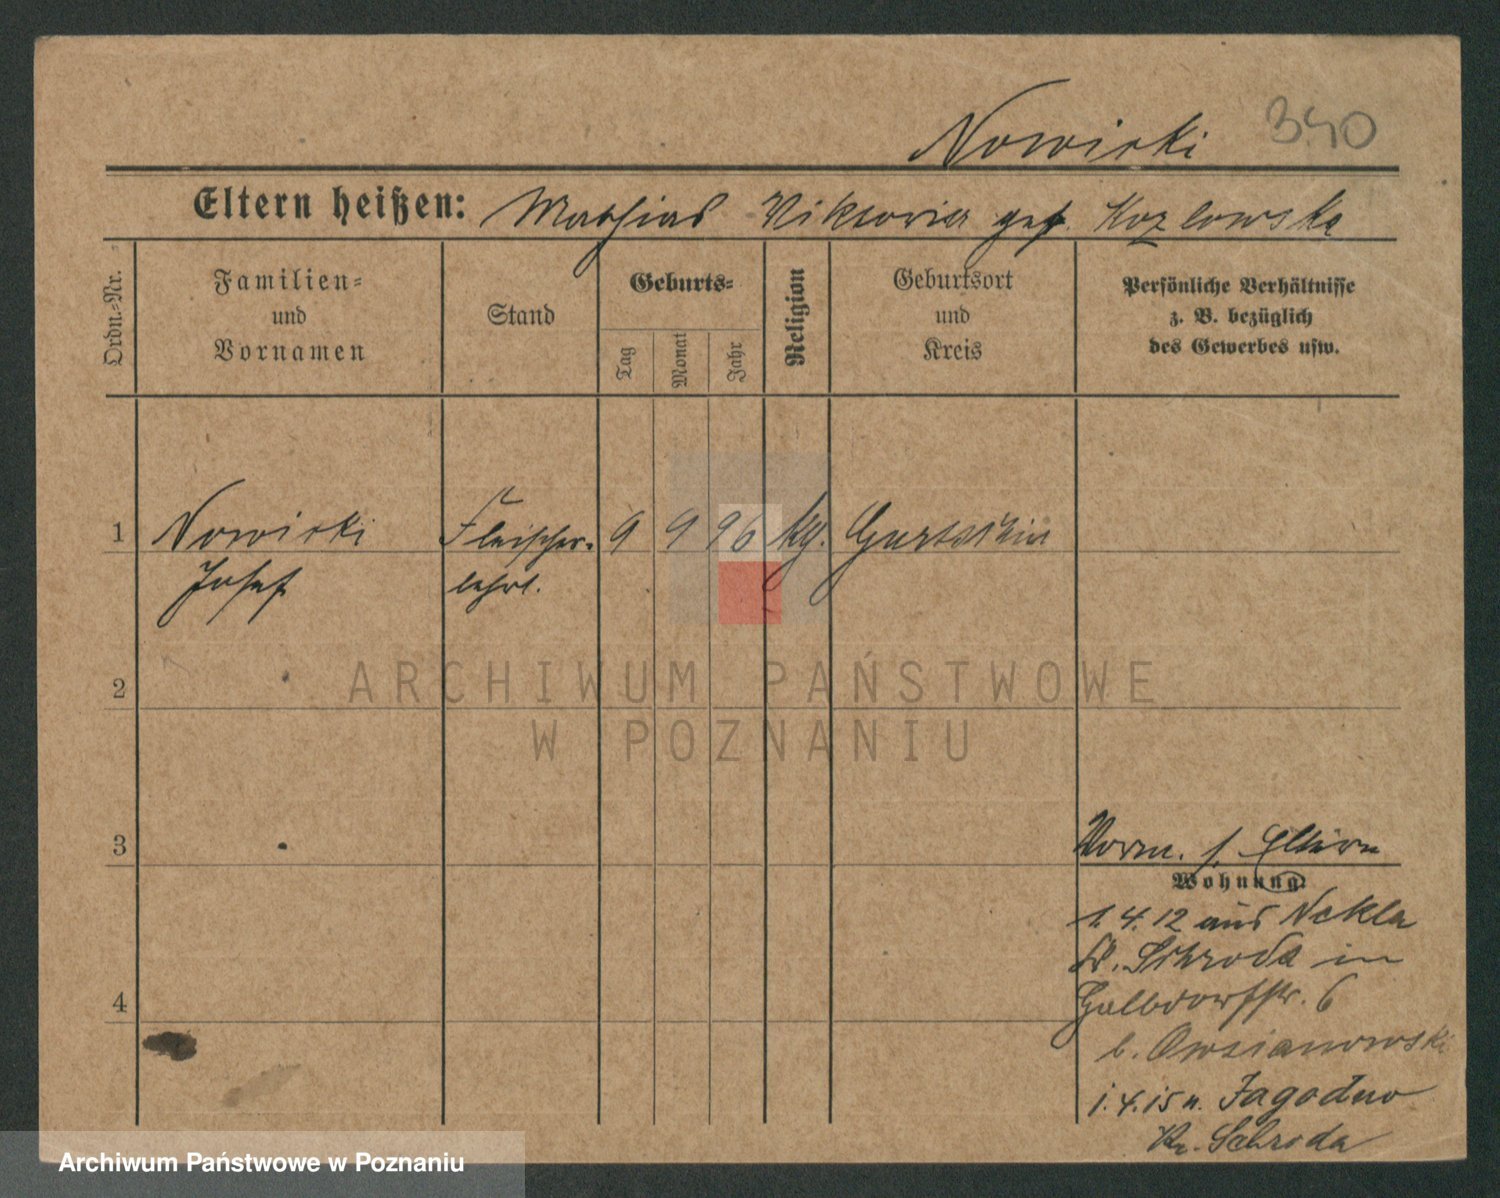 Nowicki 340
Eltern heißen: Mathias Viktoria geb. Kozlowska
Ordn.-Nr.
Familien-
und
Vornamen
Stand
Geburts-
Tag
Monat
Jahr
Religion
Geburtsort
und
Kreis
Persönliche Verhältnisse
z. B. bezüglich
des Gewerbes usw.
1 Nowicki Fleischer- 9 9 96 kg.
Josef lehrl.
2
ARCHIWUM PAŃSTWOWE
W POZNANIU
3
Vorm. s. Eltern
Wohnung.
1.4.12 aus Nekla
Kr. Schroda in
Halbdorfstr. 6
b. Owsianowski
4
1.4.15 n. Jagodno
Kr. Schroda
Archiwum Państwowe w Poznaniu